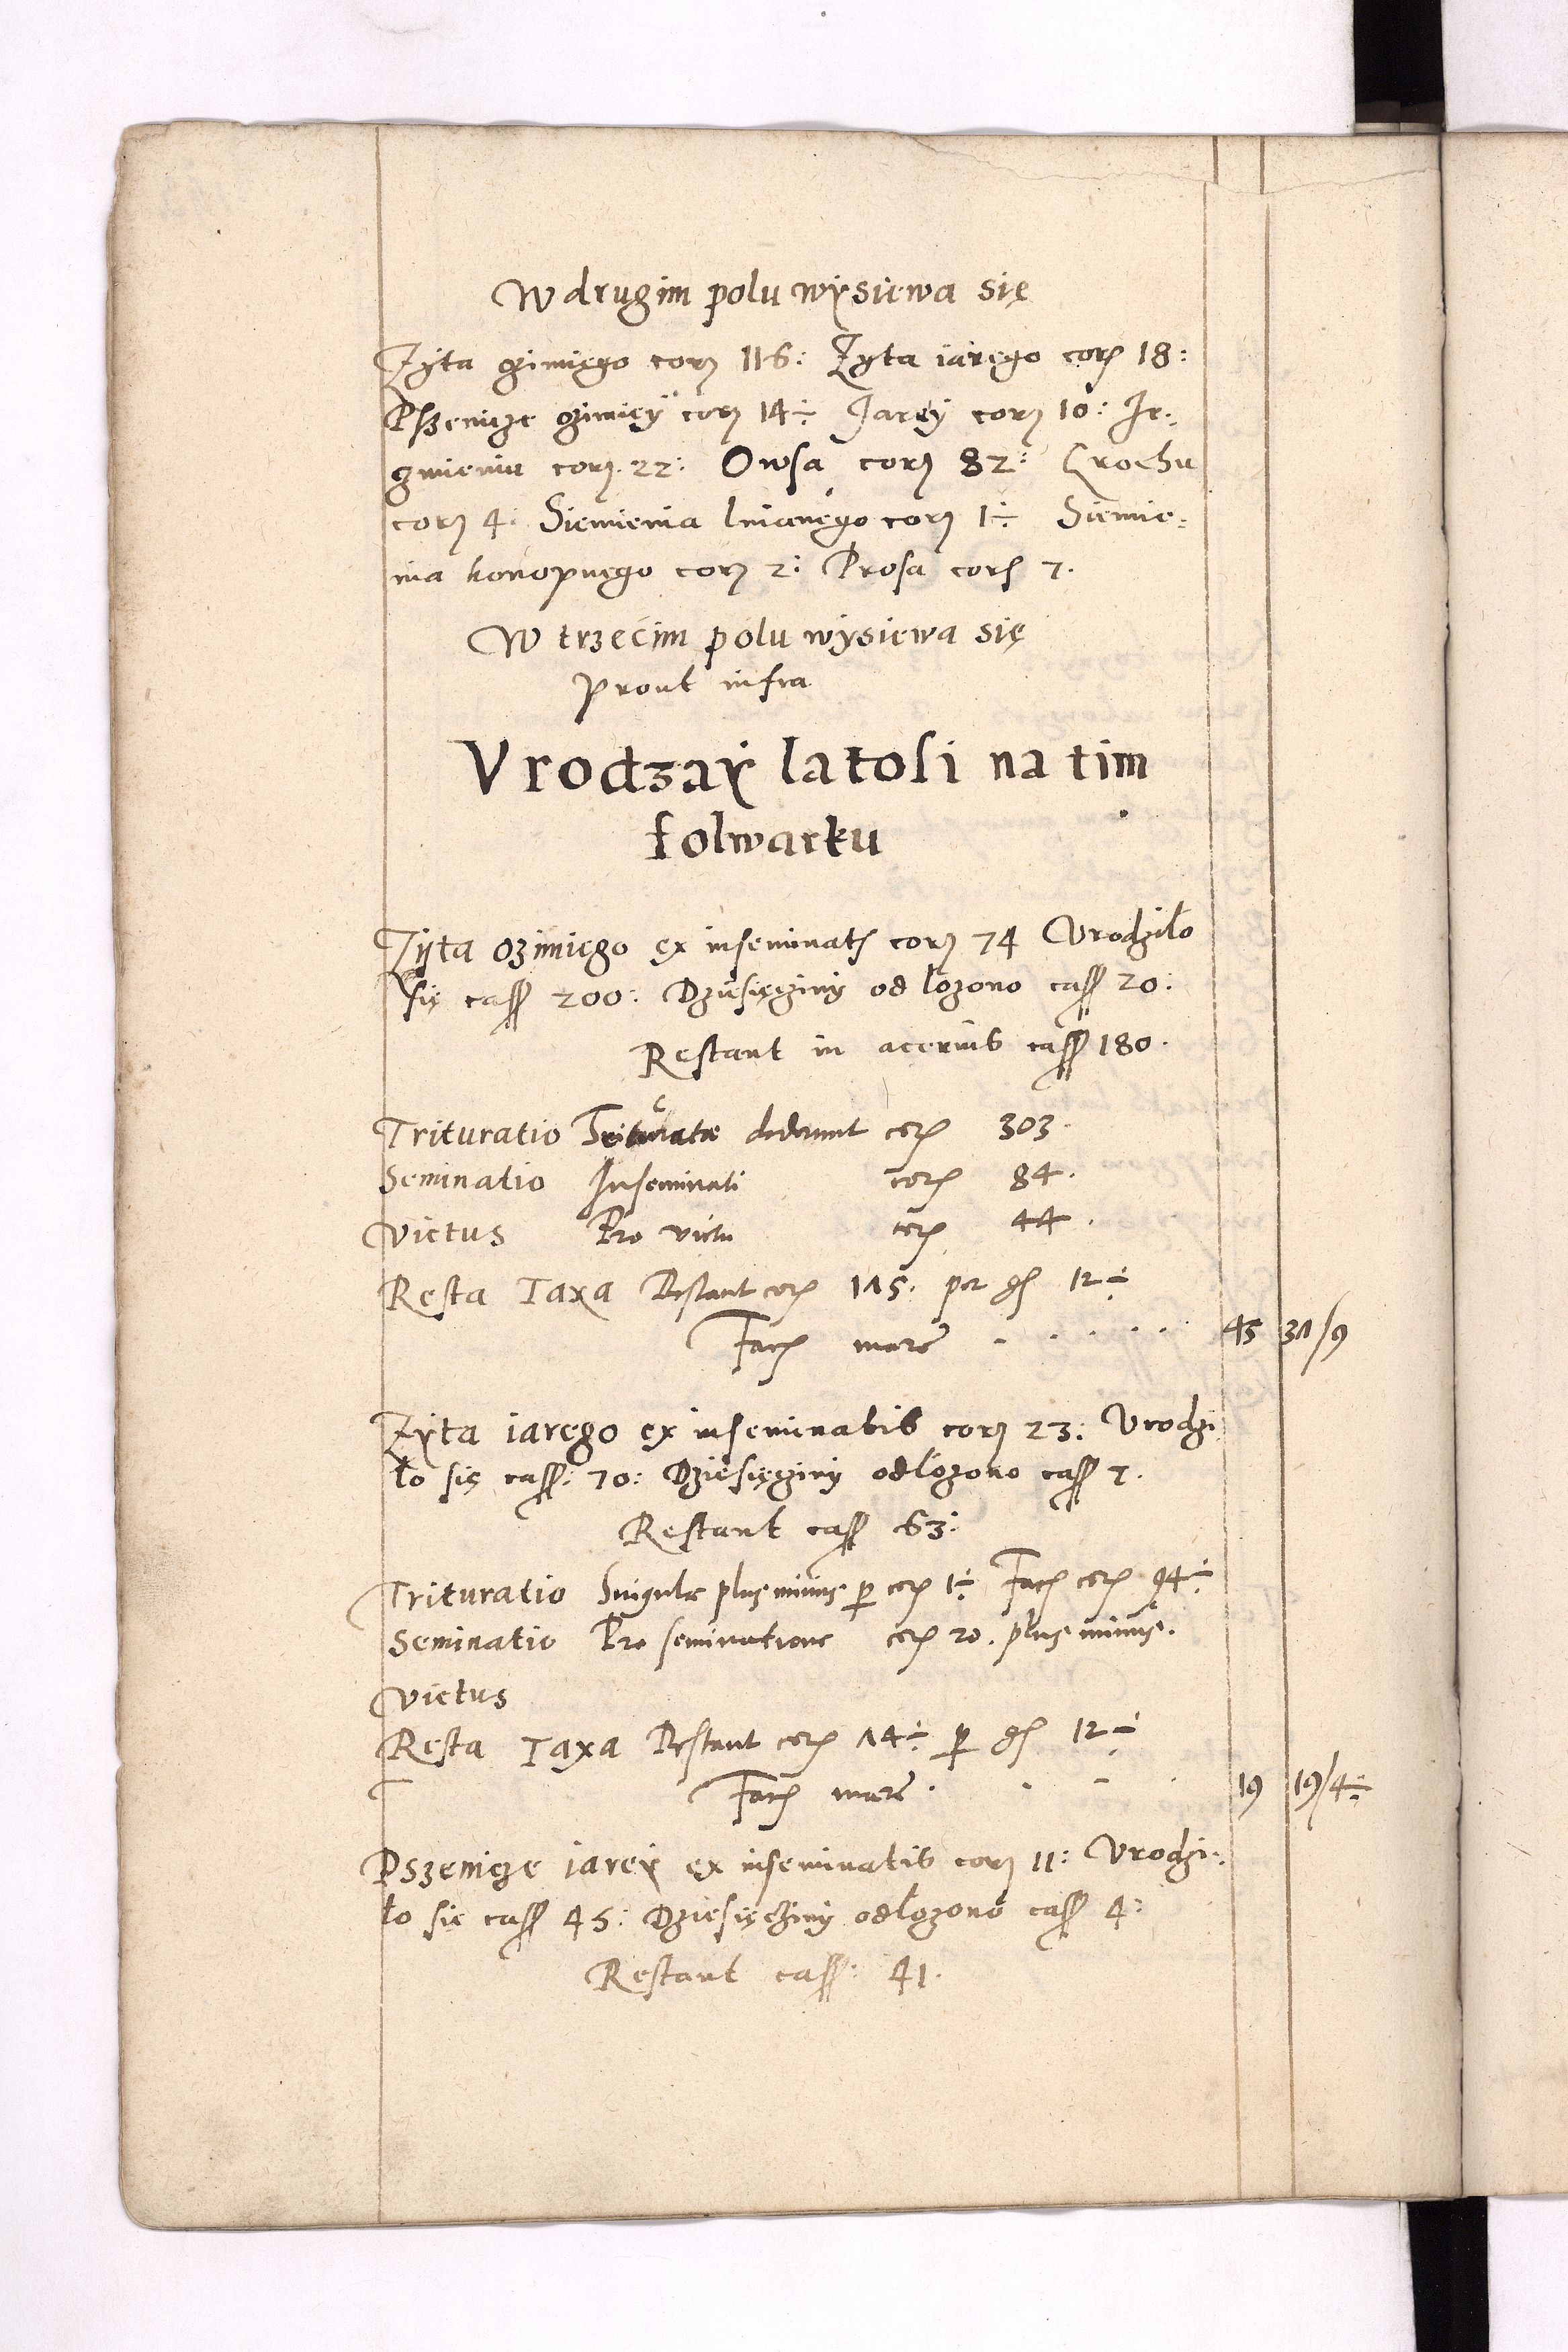 W drugim polu wysiewa się
Zyta ozimięgo corꝫ 116: Zyta iaręgo corꝫ 18:
Pszenicze ozimiey corꝫ 14÷ Jarey corꝫ 10: Ję-
czmieniu corꝫ 22: Owsa corꝫ 82: Grochu
corꝫ 4: Siemienia lnianęgo corꝫ 1÷ Siemie-
nia konopnęgo corꝫ 2: Prosa corꝫ 7.
W trzećim polu wysiewa się
Prout infra
Vrodzaÿ latosi na tim
folwarku
Zyta ozimięgo ex inseminatꝫ corꝫ 74 Vrodziło
się cass 200: Dziesięćiny odłozono cass 20:
Restant in acervis cass 180.
Trituratio Trituratæ dederunt corꝫ 303.
Seminatio Inseminati corꝫ 84.
Victus Pro victu corꝫ 44.
Resta Taxa Restant corꝫ 175. per gꝫ 12÷
Facꝫ marc̃ 45 31/9
Zyta iaręgo ex inseminatis corꝫ 23: Vrodzi
ło się cass: 70: Dziesięćiny odłozono cass 7.
Restant cass 63:
Trituratio Singulæ plus minus ꝑ corꝫ 1÷ Facꝫ corꝫ 94÷
Seminatio Pro seminatione corꝫ 20. plus minus.
Victus
Resta Taxa Restant corꝫ 74÷ ꝑ gꝫ 12÷
Facꝫ marc̃ 19 19/4÷
Pszenicze iareÿ ex inseminatis corꝫ 11: Vrodzi-
ło się cass 45: Dziesięćiny odłozono cass 4:
Restant cass: 41.